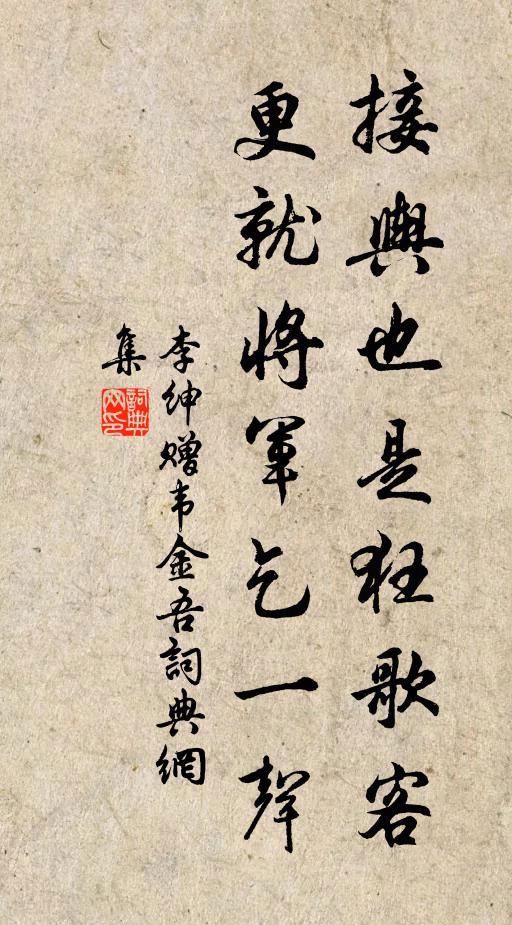 接輿也是狂歌客
更就將軍乞一聲
李紳贈韦金吾詞典網
集
詞典
网印